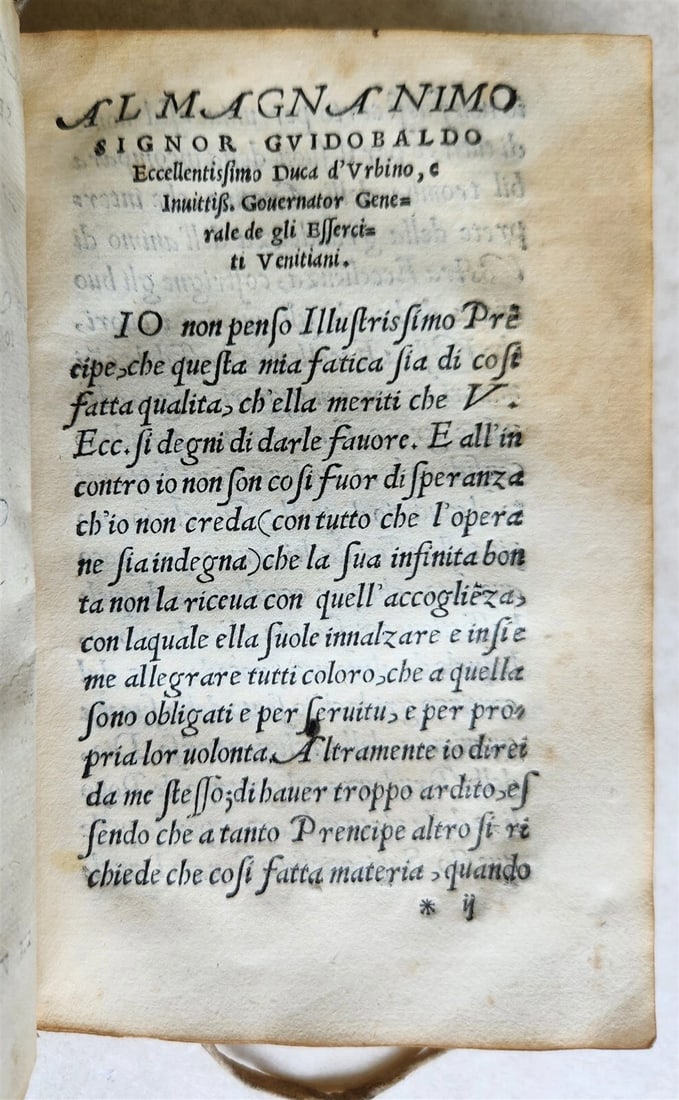 AL MAGNANIMO
SIGNOR GVIDOBALDO
Eccellentissimo Duca d'Vrbino, e
Inuittiß. Gouernator Gene=
rale de gli Esserci=
ti Venitiani.
IO non penſo Illuſtrisſimo Prẽ
cipe, che queſta mia fatica ſia di coſi
fatta qualita, ch'ella meriti che V.
Ecc. ſi degni di darle fauore. E all'in
contro io non ſon coſi fuor di ſperanza
ch'io non creda (con tutto che l'opera
ne ſia indegna) che la ſua infinita bon
ta non la riceua con quell'accogliẽza,
con laquale ella ſuole innalzare e inſie
me allegrare tutti coloro, che a quella
ſono obligati e per ſeruitu, e per pro=
pria lor uolonta. Altramente io direi
da me ſteſſo; di hauer troppo ardito, eſ
ſendo che a tanto Prencipe altro ſi ri
chiede che coſi fatta materia, quando
* ij